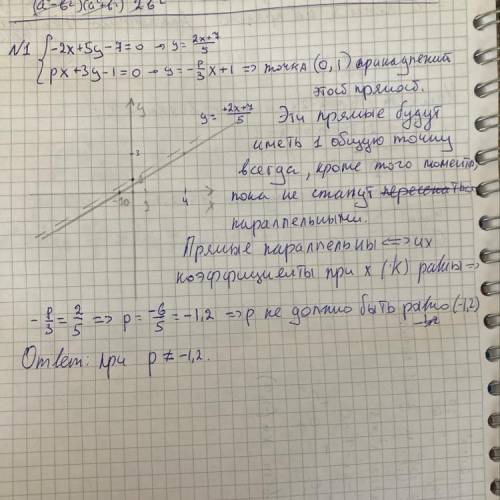 (a²-b²)(a²+b²) 2b²
N1 { -2x+5y-7=0 → y=(2x+7)/5
px+3y-1=0 → y=-p/3 x+1 => точка (0,1) принадлежит
этой прямой.
y
y=(+2x+7)/5 Эти прямые будут
иметь 1 общую точку
всегда, кроме того момента,
пока не станут
параллельными.
3
4
x
Прямые параллельны <=> их
коэффициенты при x (k) равны =>
-p/3=2/5 => p=-6/5=-1,2 => p не должно быть равно (-1,2)
Ответ: при p≠-1,2.